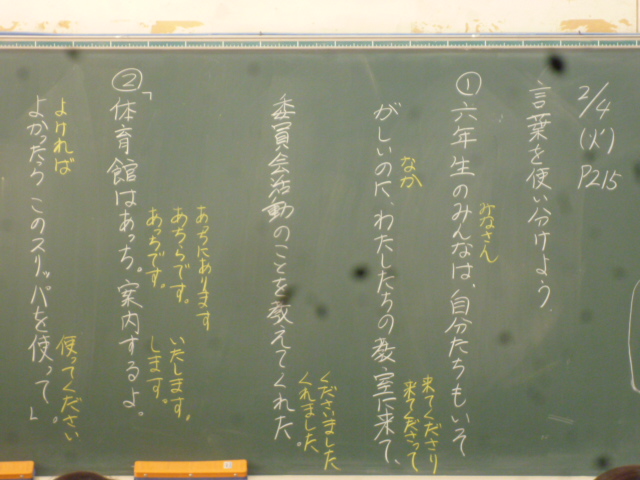 2/4
(火)
P215
言葉を使い分けよう
① 六年生のみんなは、自分たちもいそ
みなさん
がしいのに、わたしたちの教室に来て、
なか
来てくださり
来てくださって
委員会活動のことを教えてくれた。
くださいました
くれました
②「体育館はあっち。案内するよ。
あっちにあります
あちらです。
あっちです。
いたします。
します。
よかったら このスリッパを使って」。
よければ
使ってください